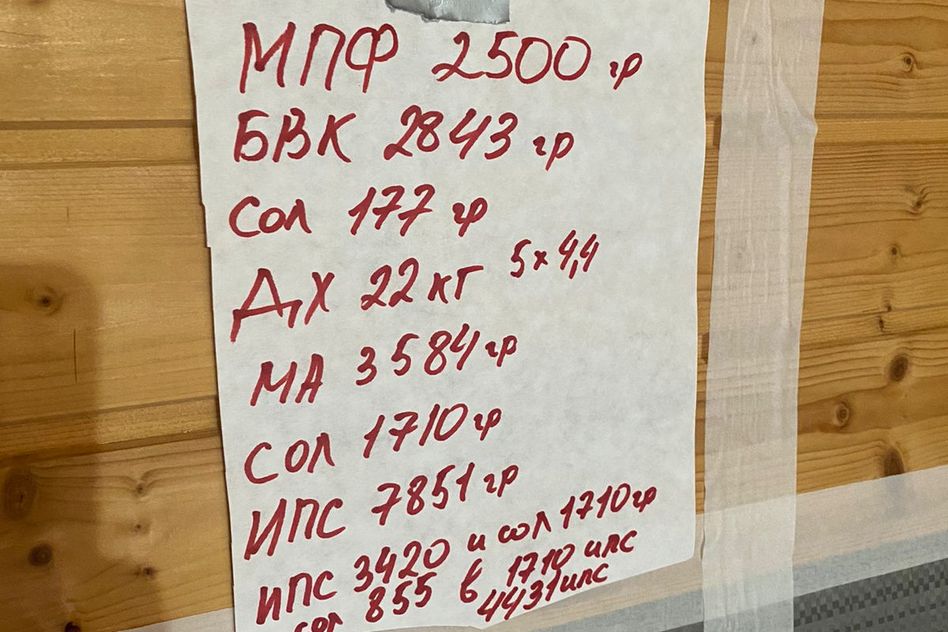 МПФ 2500 гр
БВК 2843 гр
СОЛ 177 гр
ДХ 22 кг 5 x 4,4
МА 3584 гр
СОЛ 1710 гр
ИПС 7851 гр
ИПС 3420 и сол 1710 гр
сол 855 в 1710 ипс
4431 ипс